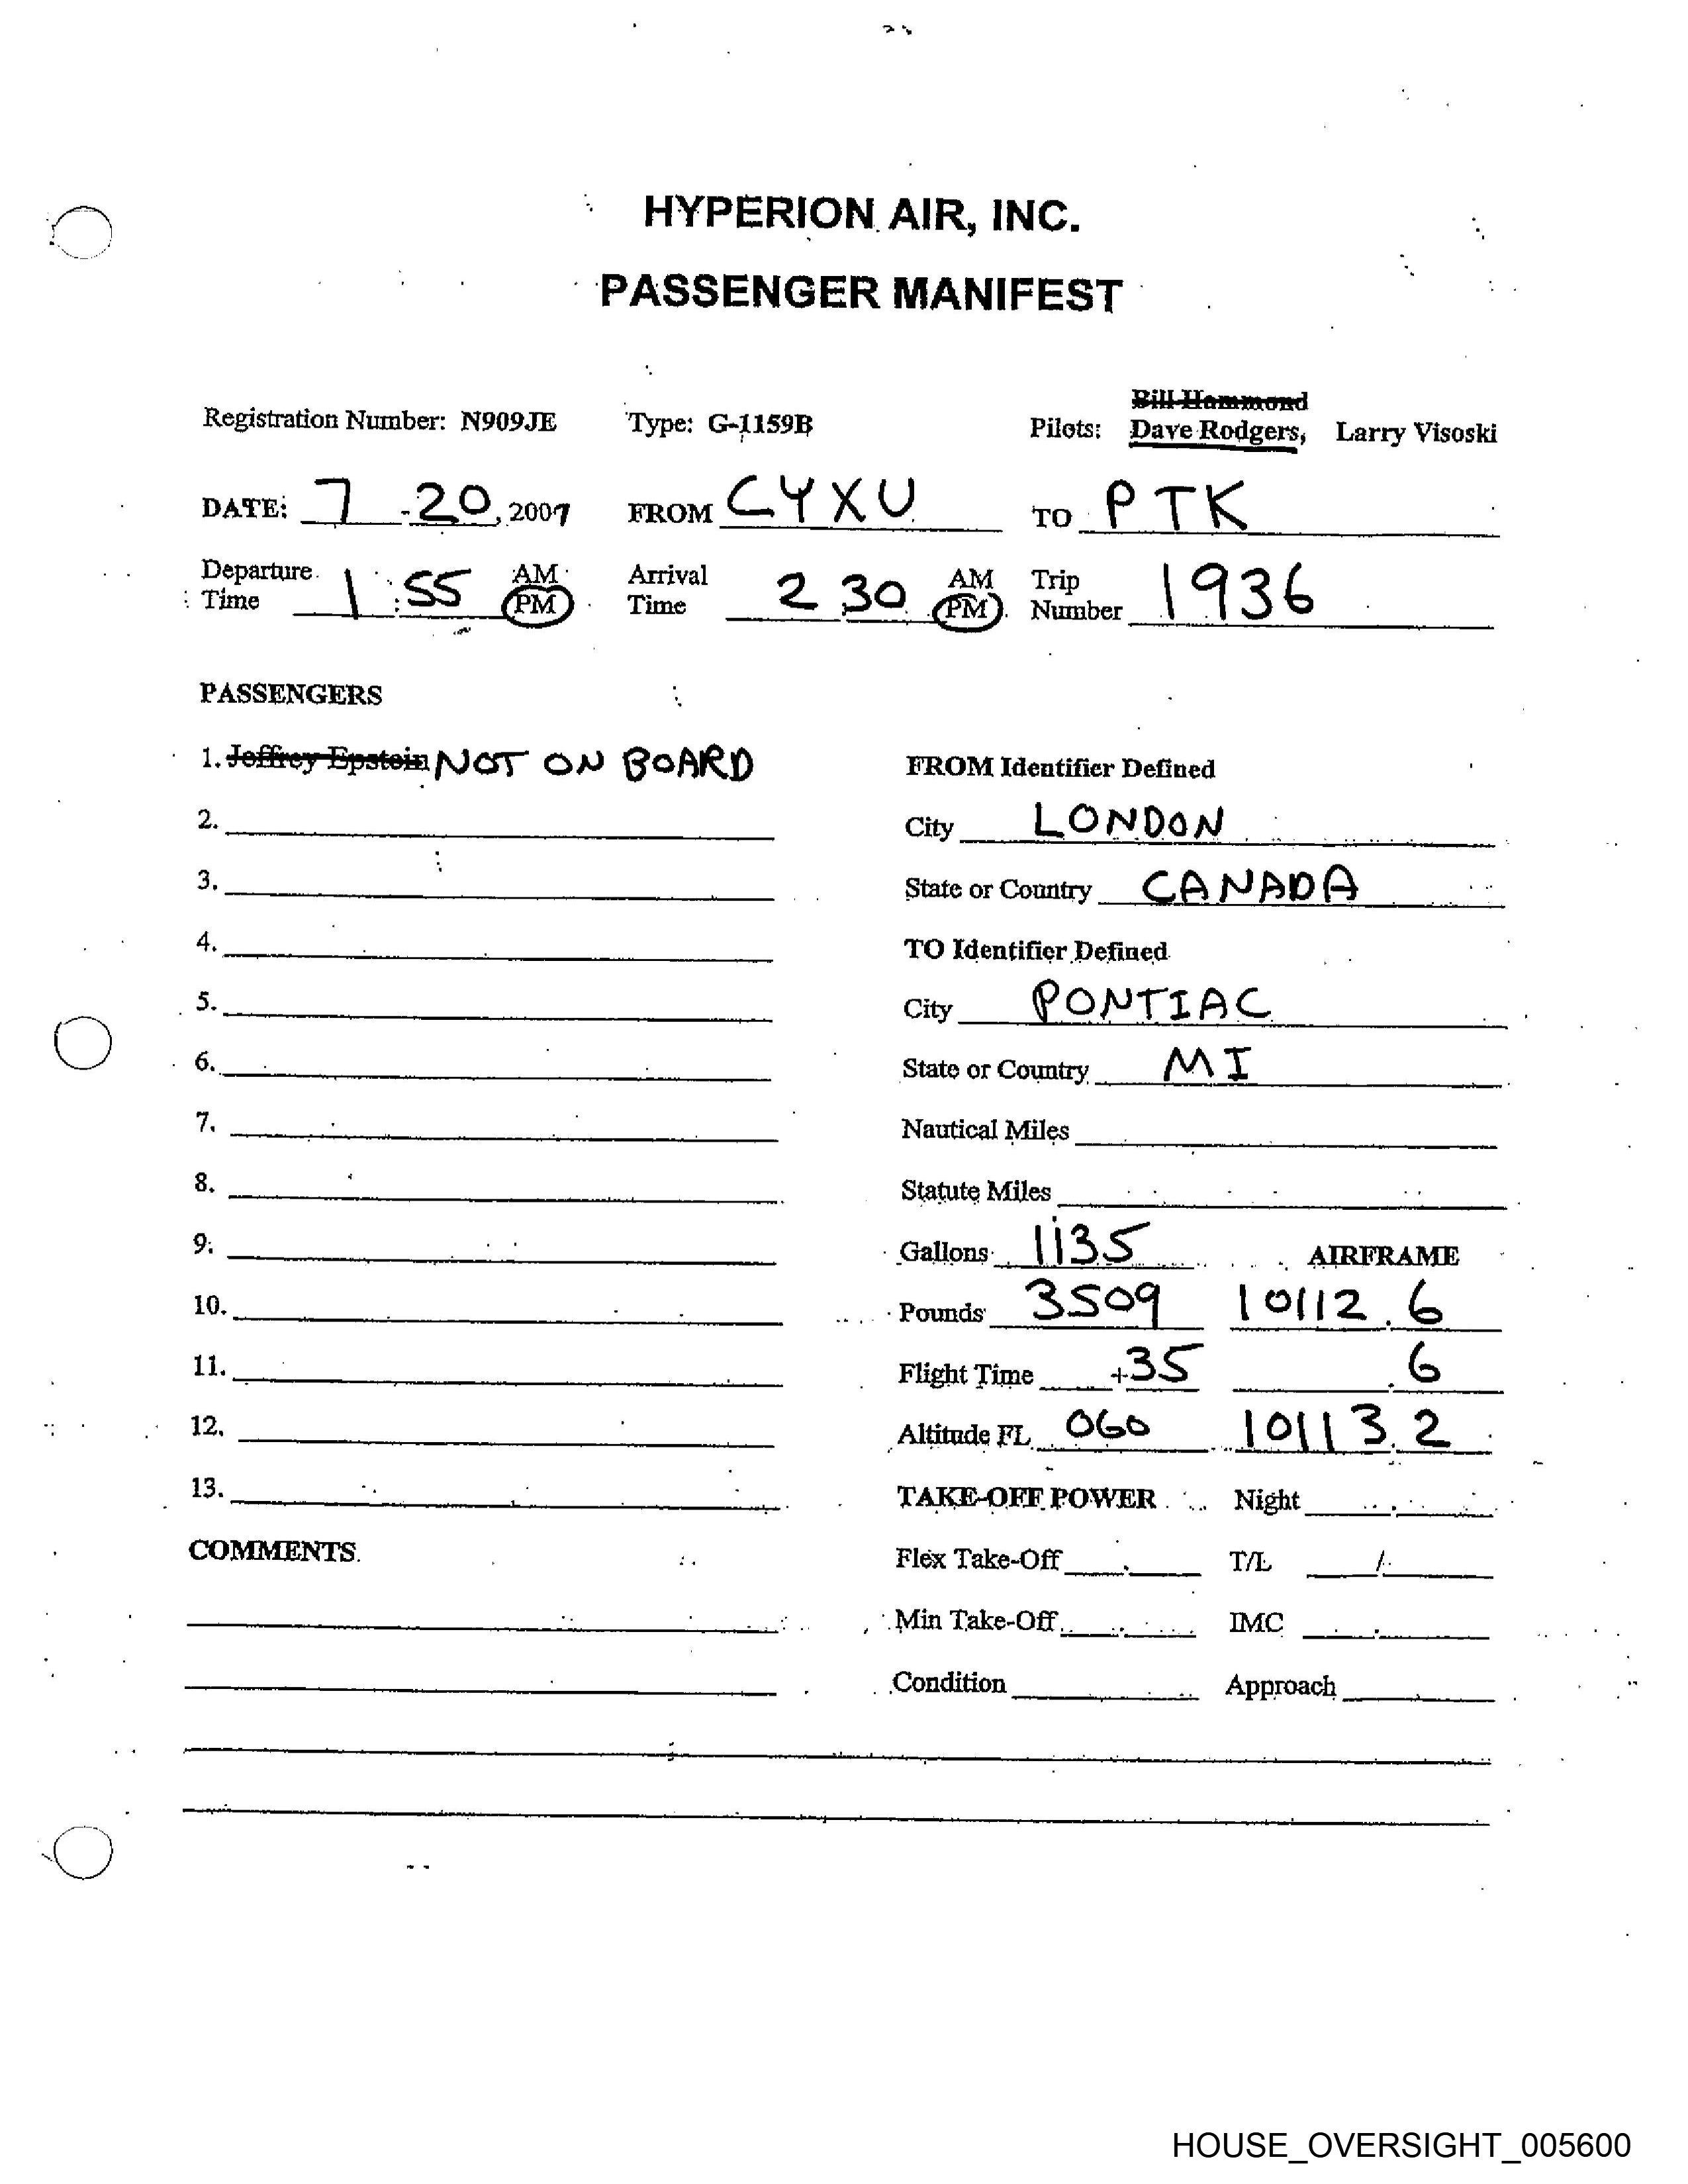 HYPERION AIR, INC.
PASSENGER MANIFEST
Bill Hammond
Registration Number: N909JE Type: G-1159B Pilots: Dave Rodgers, Larry Visoski
DATE: 7 - 20, 2007 FROM CYXU TO PTK
Departure Time 1:55 AM PM Arrival Time 2 30 AM PM Trip Number 1936
PASSENGERS
1. Jeffrey Epstein NOT ON BOARD FROM Identifier Defined
2. City LONDON
3. State or Country CANADA
4. TO Identifier Defined
5. City PONTIAC
6. State or Country MI
7. Nautical Miles
8. Statute Miles
9. Gallons 1135 AIRFRAME
10. Pounds 3509 10112.6
11. Flight Time +35 .6
12. Altitude FL 060 10113.2
13. TAKE-OFF POWER Night
COMMENTS Flex Take-Off T/L /
Min Take-Off IMC
Condition Approach
HOUSE_OVERSIGHT_005600